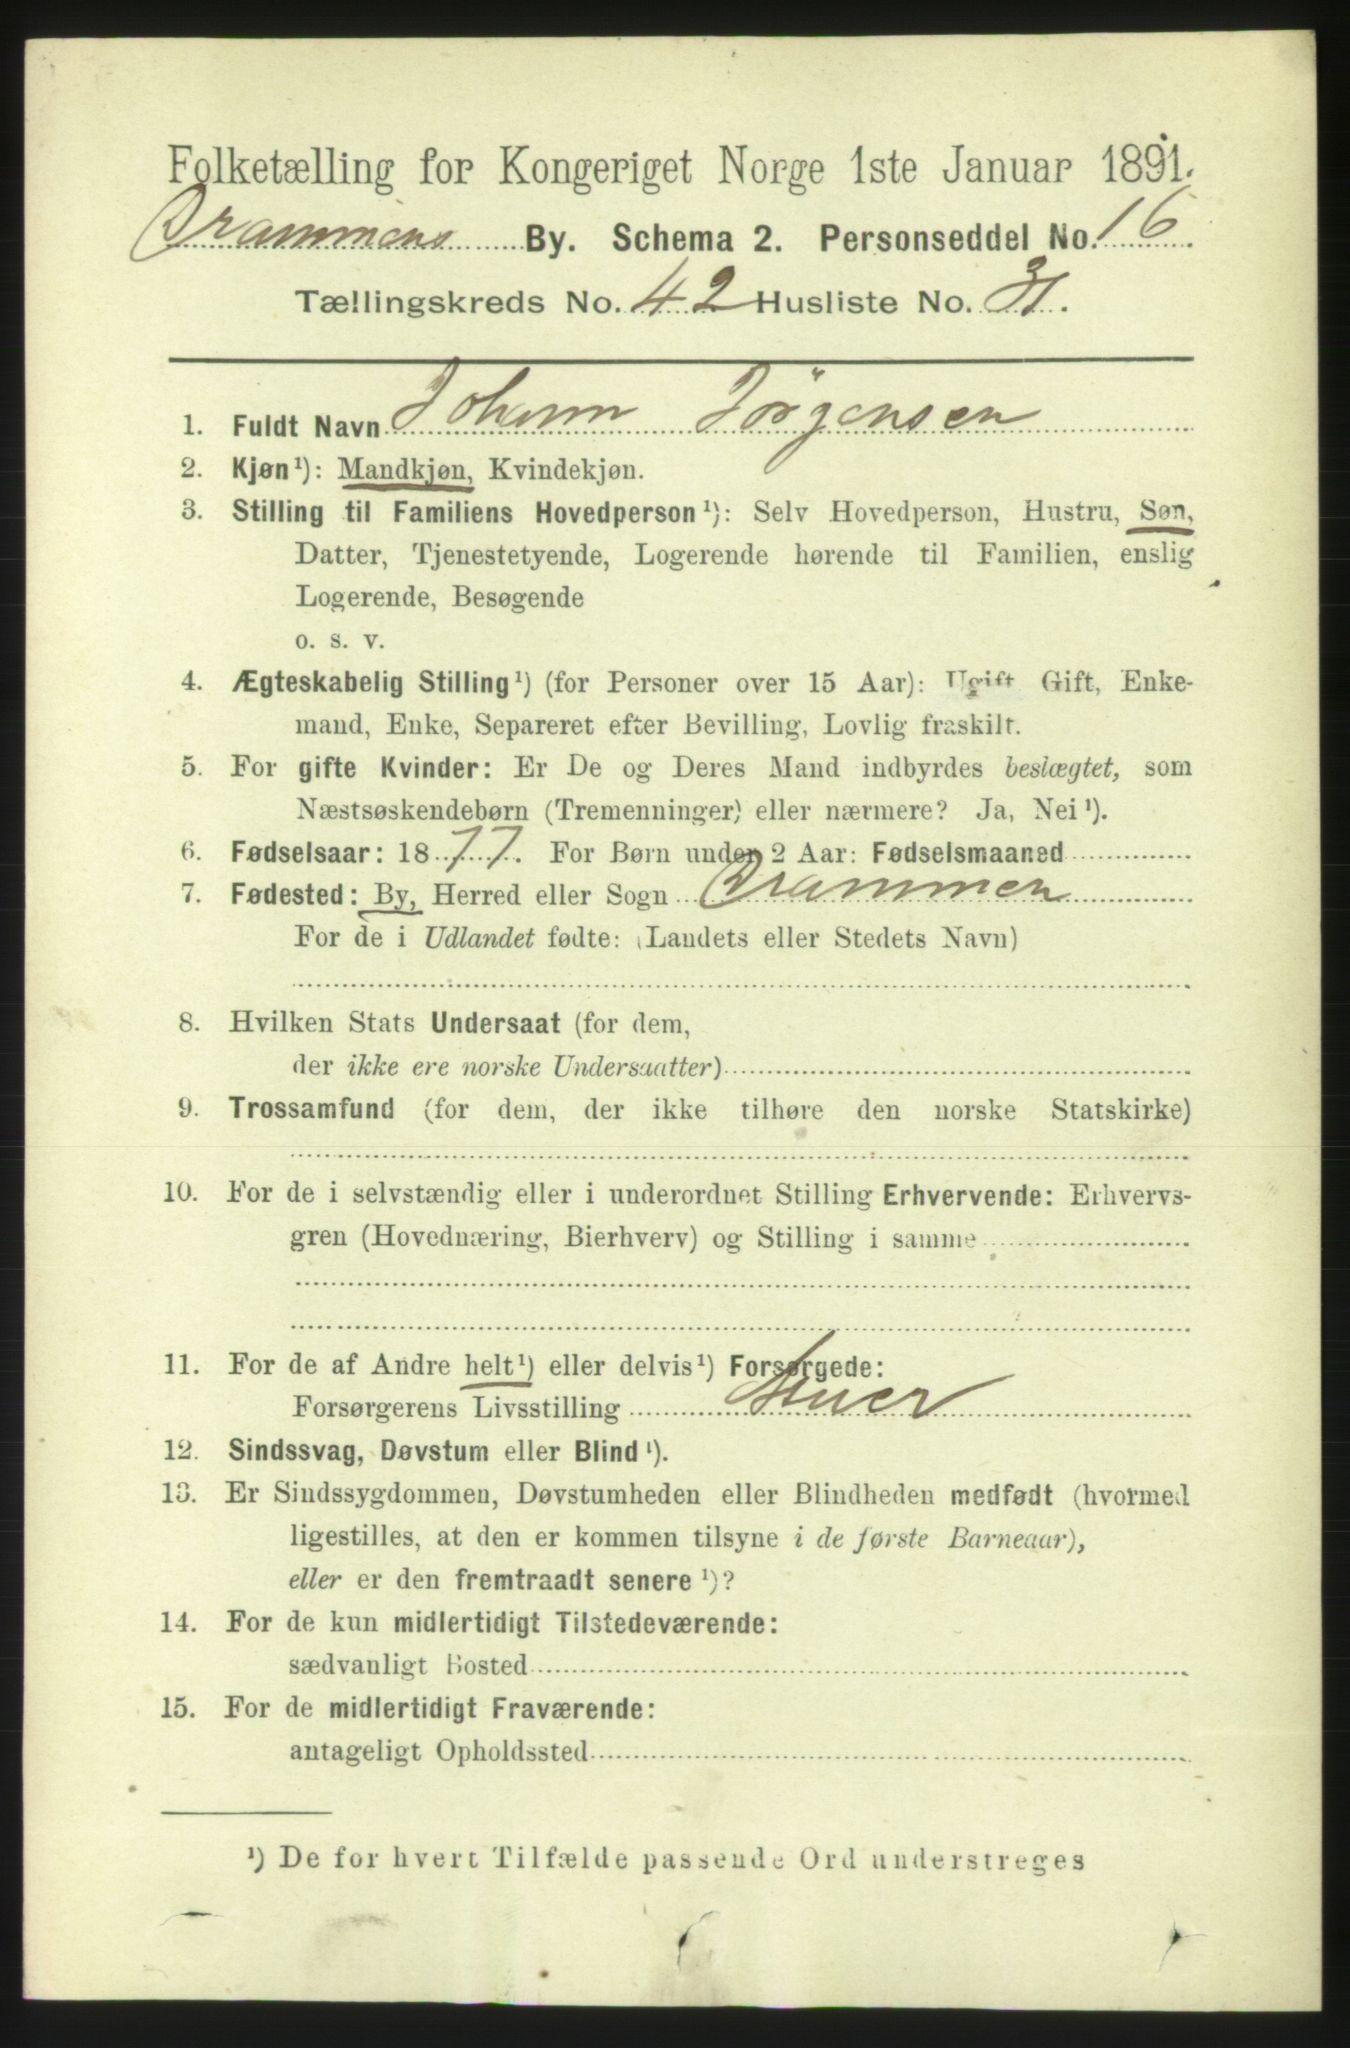 Folketælling for Kongeriget Norge 1ste Januar 1891.
Drammens By. Schema 2. Personseddel No. 16.
Tællingskreds No. 42 Husliste No. 31.
1. Fuldt Navn Johann Jörgensen
2. Kjøn¹): Mandkjøn, Kvindekjøn.
3. Stilling til Familiens Hovedperson¹): Selv Hovedperson, Hustru, Søn,
Datter, Tjenestetyende, Logerende hørende til Familien, enslig
Logerende, Besøgende
o. s. v.
4. Ægteskabelig Stilling¹) (for Personer over 15 Aar): Ugift Gift, Enke-
mand, Enke, Separeret efter Bevilling, Lovlig fraskilt.
5. For gifte Kvinder: Er De og Deres Mand indbyrdes beslægtet, som
Næstsøskendebørn (Tremenninger) eller nærmere? Ja, Nei¹).
6. Fødselsaar: 1877. For Børn under 2 Aar: Fødselsmaaned
7. Fødested: By, Herred eller Sogn Drammen
For de i Udlandet fødte: (Landets eller Stedets Navn)
8. Hvilken Stats Undersaat (for dem,
der ikke ere norske Undersaatter)
9. Trossamfund (for dem, der ikke tilhøre den norske Statskirke)
10. For de i selvstændig eller i underordnet Stilling Erhvervende: Erhvervs-
gren (Hovednæring, Bierhverv) og Stilling i samme
11. For de af Andre helt¹) eller delvis¹) Forsørgede:
Forsørgerens Livsstilling
12. Sindssvag, Døvstum eller Blind¹).
13. Er Sindssygdommen, Døvstumheden eller Blindheden medfødt (hvormed
ligestilles, at den er kommen tilsyne i de første Barneaar),
eller er den fremtraadt senere¹)?
14. For de kun midlertidigt Tilstedeværende:
sædvanligt Bosted
15. For de midlertidigt Fraværende:
antageligt Opholdssted
¹) De for hvert Tilfælde passende Ord understreges